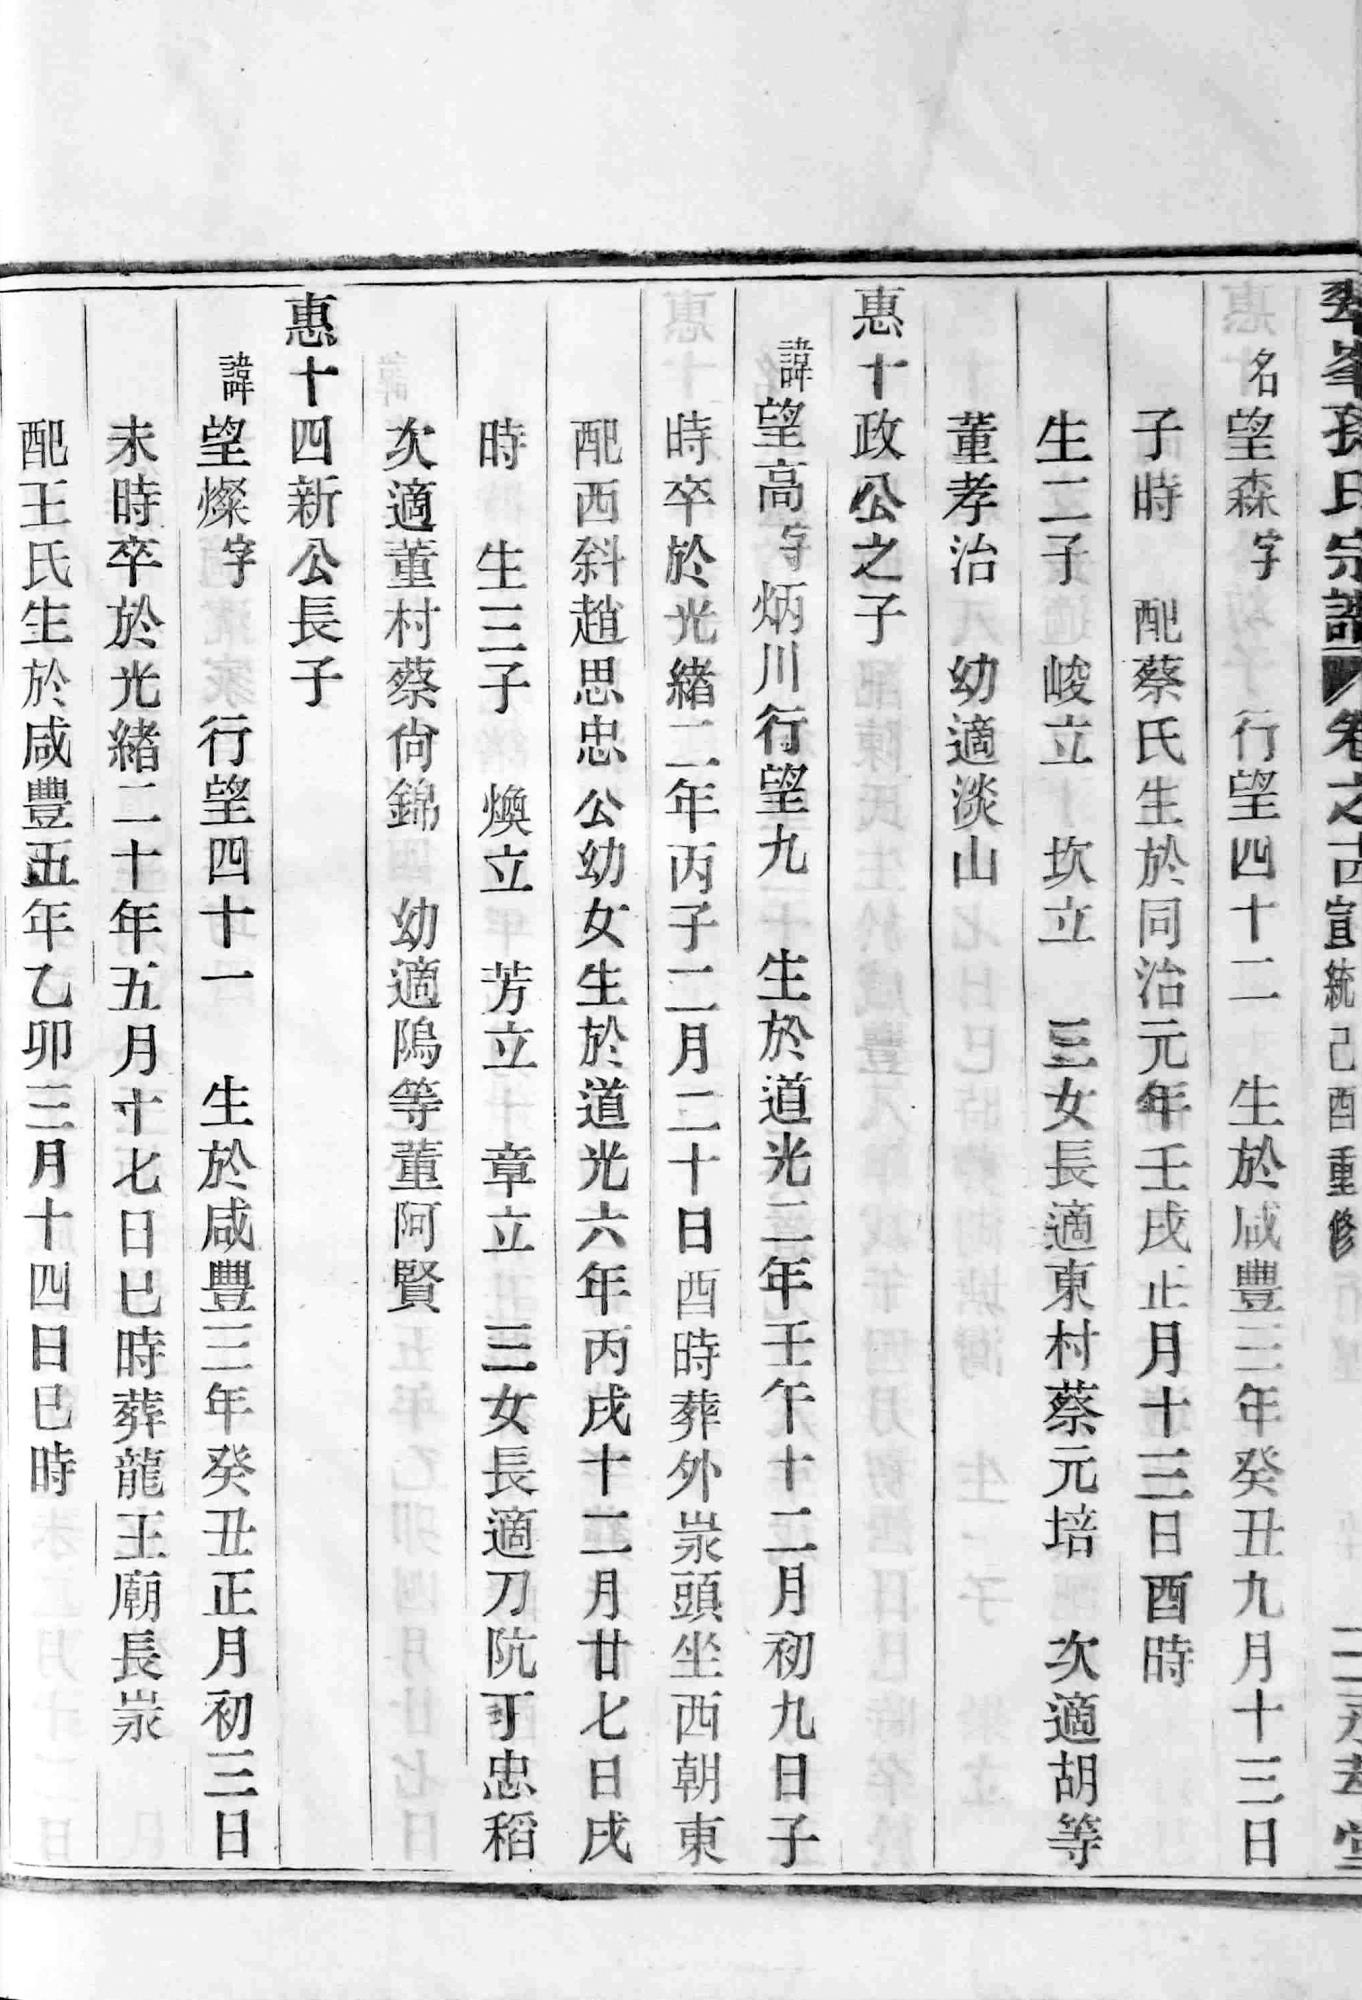 翠峯孫氏宗譜 卷之 宣統己酉重修 堂
名望森字 行望四十二 生於咸豐三年癸丑九月十三日
子時 配蔡氏生於同治元年壬戌正月十三日酉時
生二子 峻立 坎立 三女長適東村蔡元培 次適胡等
董孝治 幼適淡山
惠十政公之子
諱望高字炳川行望九 生於道光二年壬午十二月初九日子
時卒於光緒二年丙子二月二十日酉時葬外岽頭坐西朝東
配西斜趙思忠公幼女生於道光六年丙戌十二月廿七日戌
時 生三子 煥立 芳立 章立 三女長適刀阬丁忠稻
次適董村蔡尙錦 幼適隝等董阿賢
惠十四新公長子
諱望燦字 行望四十一 生於咸豐三年癸丑正月初三日
未時卒於光緒二十年五月十七日巳時葬龍王廟長岽
配王氏生於咸豐五年乙卯三月十四日巳時